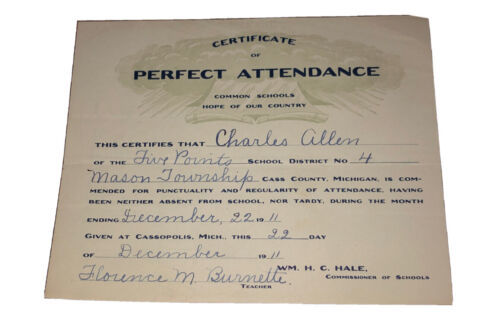 CERTIFICATE
OF
PERFECT ATTENDANCE
COMMON SCHOOLS
HOPE OF OUR COUNTRY
THIS CERTIFIES THAT Charles Allen
OF THE Five Points SCHOOL DISTRICT NO. 4
Mason Township CASS COUNTY, MICHIGAN, IS COM-
MENDED FOR PUNCTUALITY AND REGULARITY OF ATTENDANCE, HAVING
BEEN NEITHER ABSENT FROM SCHOOL, NOR TARDY, DURING THE MONTH
ENDING December, 22 1911
GIVEN AT CASSOPOLIS, MICH., THIS 22 DAY
OF December 1911
Florence M. Burnette. WM. H. C. HALE,
TEACHER COMMISSIONER OF SCHOOLS